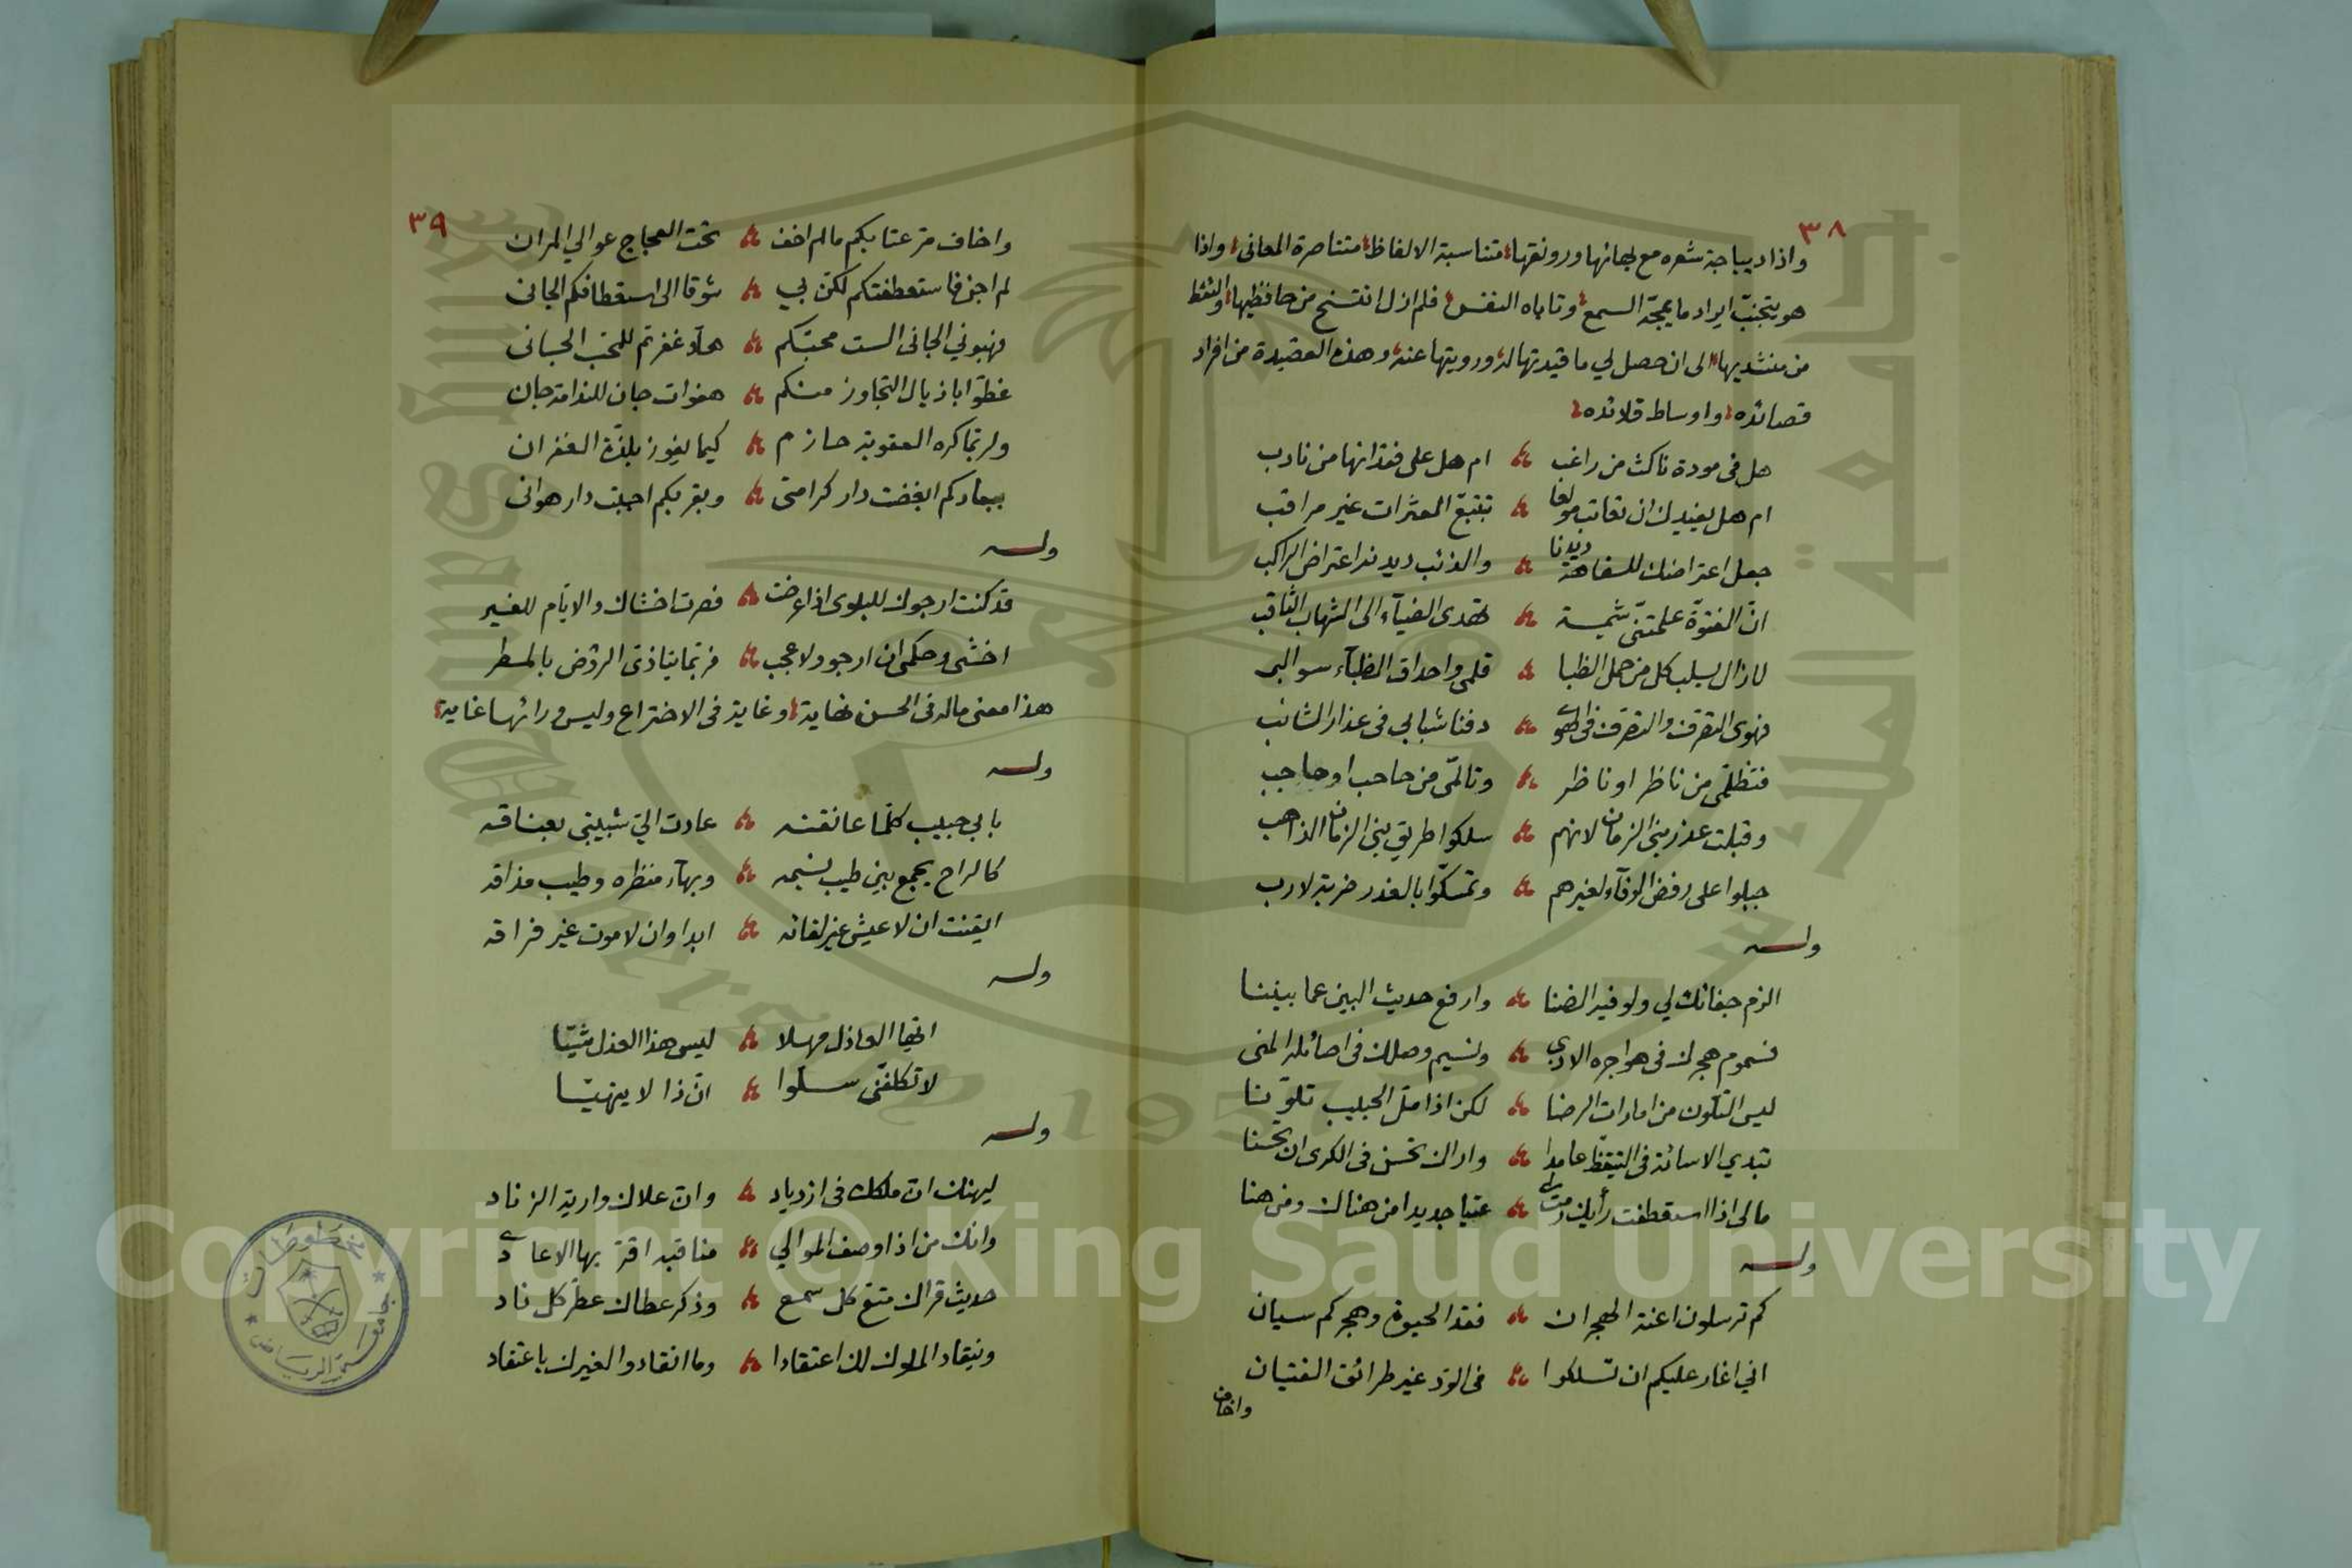 ٣٨
واذا ديباجة شعره مع بهائها ورونقها متناسبة الالفاظ متناصرة المعانى واذا
هو يتجنب ايراد ما يمجّه السمع وتاباه النفس فلم ازل انتسخ من حافظيها والتقط
من منشديها الى ان حصل لي ما قيدتها له ورويتها عنه وهذه القصيدة من افراد
قصائده واوساط قلائده
هل فى مودة ناكث من راغب ام هل على فقدانها من نادب
ام هل يفيدك ان تعاتب مولعا بتتبع العثرات غير مراقب
جعل اعتراضك للسفاهة ديدنا والذئب ديدنه اعتراض الراكب
انّ الفتوّة علمتنى شيمة تهدى الضيآء الى الشهاب الثاقب
لا زال يسلب كل من حمل الظبا قلمى واحداق الظبآء سوالبى
فهوى التصرف والتصرف فى الهوى دفنا شبابي فى عذار الشائب
فتظلّمى من ناظر او ناظر وتالمّى من حاجب او حاجب
وقبلت عذر بنى الزمان لانهم سلكوا طريق بنى الزمان الذاهب
جبلوا على رفض الوفآء لغيرهم وتمسكّوا بالغدر ضربة لازب
وله
الزم جفائك لي ولو فيه الضنا وارفع حديث البين عما بيننا
فسموم هجرك فى هواجره الاذى ونسيم وصلك فى اصائله المنى
ليس التلّون من امارات الرضا لكن اذا ملّ الحبيب تلوّنا
تبدي الاسائة فى التيقّظ عامدا واراك تحسن فى الكرى ان تحسنا
مالى اذا استعطفت رأيك رمت لى عتبا جديدا من هناك ومن هنا
وله
كم ترسلون اعنة الهجران فقد الحيوة وهجركم سيان
اني اغار عليكم ان تسلكوا فى الودّ غير طرائق الفتيان
واخاف
٣٩
واخاف من عتابكم مالم اخف تحت العجاج عوالي المران
لم اجن فاستعطفتكم لكن بي شوقا الى استعطافكم الجانى
فهبوني الجانى الست محبّكم هلّا غفرتم للمحب الجانى
غطوّا باذيال التجاوز منكم هفوات جان للندامة جان
ولربّما كره العقوبة حازم كيما يفوز بلذّة الغفران
ببعادكم ابغضت دار كرامتى وبقربكم احببت دار هوانى
وله
قد كنت ارجوك للبلوى اذا عرضت فصرت اخشاك والايّام للغير
اخشى وحكمى ان ارجو ولا عجب فربّما يتاذى الروض بالمطر
هذا معنى ماله فى الحسن نهاية وغاية فى الاختراع وليس ورائها غاية
وله
بابي حبيب كلّما عانقته عادت اليّ شبيبتى بعناقه
كالراح يجمع بين طيب نسيمه وبهآء منظره وطيب مذاقه
ايقنت ان لا عيش غير لقائه ابدا وان لا موت غير فراقه
وله
ايّها العاذل مهلا ليس هذا العذل شيّا
لا تكلفّنى سلوّا انّ ذا لا يتهيّا
وله
ليهنك انّ ملكك فى ازدياد وانّ علاك وارية الزناد
وانك من اذا وصف الموالي مناقبه اقرّ بها الاعادى
حديث قراك متّع كل سمع وذكر عطاك عطّر كل ناد
وينقاد الملوك لك اعتقادا وما انقادوا لغيرك باعتقاد
مخطوطات
جامعة الرياض
King Saud University
1957
Copyright © King Saud University